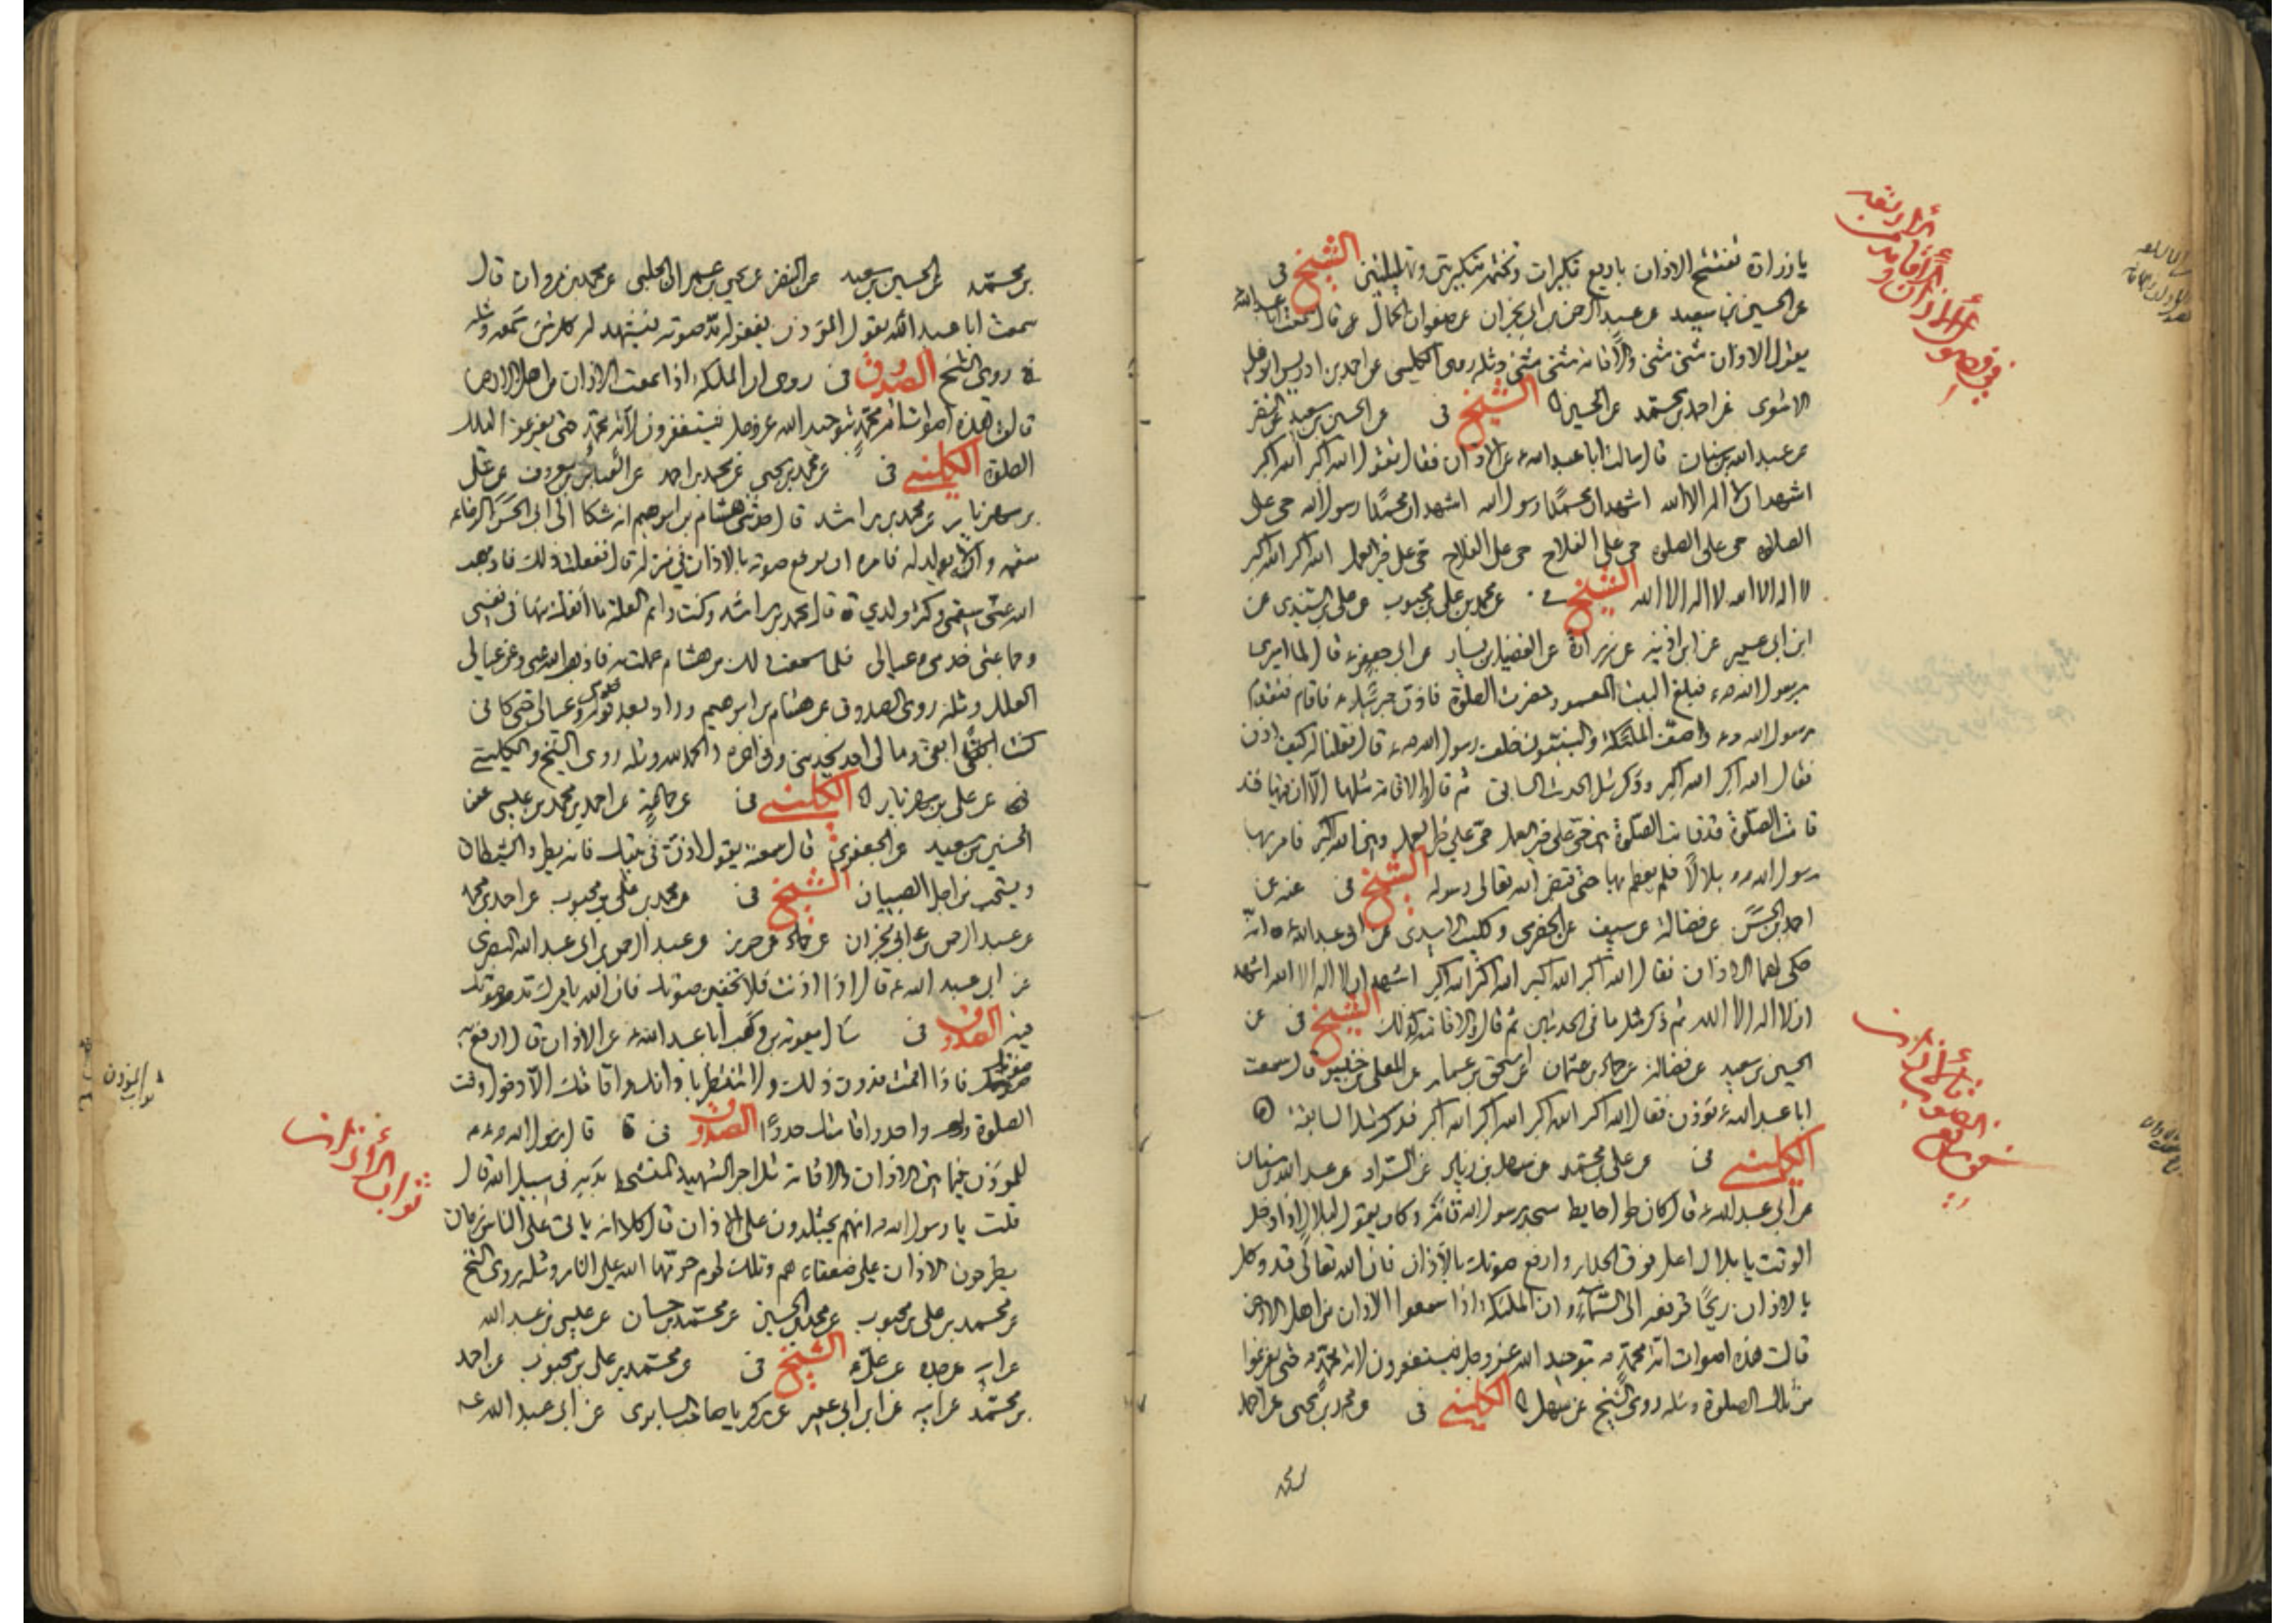 يا زرارة تفتتح الاذان باربع تكبيرات وتختمه بتكبيرتين وتهليلتين الشيخ في
عن الحسين بن سعيد عن عبد الرحمن بن ابي نجران عن صفوان الجمال قال سمعت ابا عبد الله
يقول الاذان مثنى مثنى والاقامة مثنى مثنى ومثله روى الكليني عن احمد بن ادريس
الشيخ في عن الحسين بن سعيد عن النضر
عن عبد الله بن سنان قال سالت ابا عبد الله ع عن الاذان فقال تقول الله اكبر الله اكبر
اشهد ان لا اله الا الله اشهد ان محمدا رسول الله اشهد ان محمدا رسول الله حي على
الصلوة حي على الصلوة حي على الفلاح حي على الفلاح حي على خير العمل الله اكبر الله اكبر
لا اله الا الله لا اله الا الله الشيخ في عن محمد بن علي بن محبوب عن علي بن السندي عن
ابن ابي عمير عن ابن اذينة عن زرارة عن الفضيل بن يسار عن ابي جعفر ع قال لما اسري
برسول الله ص فبلغ البيت المعمور حضرت الصلوة فاذن جبرئيل ع فاقام فتقدم
رسول الله ص وصف الملئكة والنبيون خلف رسول الله ص قال فقلنا له كيف اذن
فقال الله اكبر الله اكبر وذكر مثل الحديث السابق ثم قال والاقامة مثلها الا ان فيها قد
قامت الصلوة قد قامت الصلوة بين حي على خير العمل حي على خير العمل وبين الله اكبر فامر بها
رسول الله ص بلالا فلم يؤذن بها حتى قبض الله تعالى رسوله الشيخ في عنه عن
احمد بن الحسن عن فضالة عن سيف عن الحضرمي وكليب الاسدي عن ابي عبد الله ع انه
حكى لهما الاذان فقال الله اكبر الله اكبر الله اكبر الله اكبر اشهد ان لا اله الا الله اشهد
ان لا اله الا الله ثم ذكر مثل ما في الحديثين ثم قال والاقامة كذلك الشيخ في عن
الحسين بن سعيد عن فضالة عن حماد بن عثمان عن اسحق بن عمار عن المعلى بن خنيس قال سمعت
ابا عبد الله ع يؤذن فقال الله اكبر الله اكبر الله اكبر الله اكبر فذكر مثل السابقة
الكليني في عن علي بن محمد عن سهل بن زياد عن السراد عن عبد الله بن سنان
عن ابي عبد الله ع قال كان طول حايط مسجد رسول الله قامة وكان يقول لبلال اذا دخل
الوقت يا بلال اعل فوق الجدار وارفع صوتك بالاذان فان الله تعالى قد وكل
بالاذان ريحا ترفعه الى السماء وان الملئكة اذا سمعوا الاذان من اهل الارض
قالت هذه اصوات امة محمد ص بتوحيد الله عز وجل فيستغفرون لامة محمد ص حتى يفرغوا
من تلك الصلوة ومثله روى الشيخ عن سهل الكليني في عن محمد بن يحيى عن احمد
بن محمد
بن محمد عن الحسين بن سعيد عن النضر عن يحيى بن عمران الحلبي عن محمد بن مروان قال
سمعت ابا عبد الله يقول المؤذن يغفر له مد صوته ويشهد له كل شئ سمعه ومثله
روى الشيخ الصدوق في روي ان الملئكة اذا سمعت الاذان من اهل الارض
قالت هذه اصوات امة محمد بتوحيد الله عز وجل فيستغفرون لامة محمد حتى يفرغوا من تلك
الصلوة الكليني في عن محمد بن يحيى عن محمد بن احمد عن العباس بن معروف عن علي
بن مهزيار عن محمد بن راشد قال حدثني هشام بن ابرهيم انه شكا الى ابي الحسن الرضا ع
سقمه وانه لا يولد له فامره ان يرفع صوته بالاذان في منزله قال ففعلت ذلك فاذهب
الله عني سقمي وكثر ولدي قال محمد بن راشد وكنت دائم العلة ما انفك منها في نفسي
وجماعة خدمي وعيالي فلما سمعت ذلك من هشام عملت به فاذهب الله عني وعن عيالي
العلل ومثله روى الصدوق عن هشام بن ابرهيم وزاد بعد قوله وعيالي حتى كاني
كنت ابقى وما لي احد يخدمني وفي اخره والحمد لله ومثله روى الشيخ والكليني
عن علي بن مهزيار الكليني في عن جماعة عن احمد بن محمد بن عيسى عن
الحسين بن سعيد عن الجعفري قال سمعته يقول اذن في بيتك فانه يطرد الشيطان
ويستحب من اجل الصبيان الشيخ في عن محمد بن علي بن محبوب عن احمد بن محمد
عن عبد الرحمن بن ابي نجران عن حماد عن حريز عن عبد الرحمن بن ابي عبد الله البصري
عن ابي عبد الله ع قال اذا اذنت فلا تخفين صوتك فان الله ياجرك مد صوتك
فيه الصدوق في سال معوية بن وهب ابا عبد الله ع عن الاذان قال ارفع به
صوتك فاذا اقمت فدون ذلك ولا تنتظر باذانك واقامتك الا دخول وقت
الصلوة واحدر اقامتك حدرا الصدوق في قال رسول الله ص
للمؤذن فيما بين الاذان والاقامة مثل اجر الشهيد المتشحط بدمه في سبيل الله قال
قلت يا رسول الله انهم يجتلدون على الاذان قال كلا انه ياتي على الناس زمان
يطرحون الاذان على ضعفاءهم وتلك لحوم حرمها الله على النار ومثله روى الشيخ
عن محمد بن علي بن محبوب عن محمد بن الحسين عن محمد بن حسان عن عيسى بن عبد الله
عن ابيه عن جده عن علي ع الشيخ في عن محمد بن علي بن محبوب عن احمد
بن محمد عن ابيه عن ابن ابي عمير عن زكريا صاحب السابري عن ابي عبد الله ع